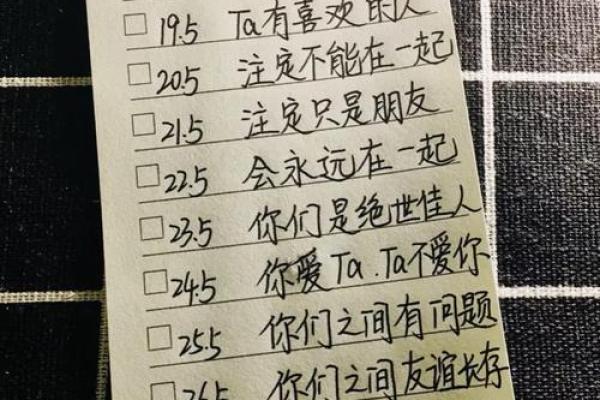 19.5 Ta有喜欢的人
20.5 注定不能在一起
21.5 注定只是朋友
22.5 会永远在一起
23.5 你们是绝世佳人
24.5 你爱Ta.Ta不爱你
25.5 你们之间有问题
26.5 你们之间友谊长存